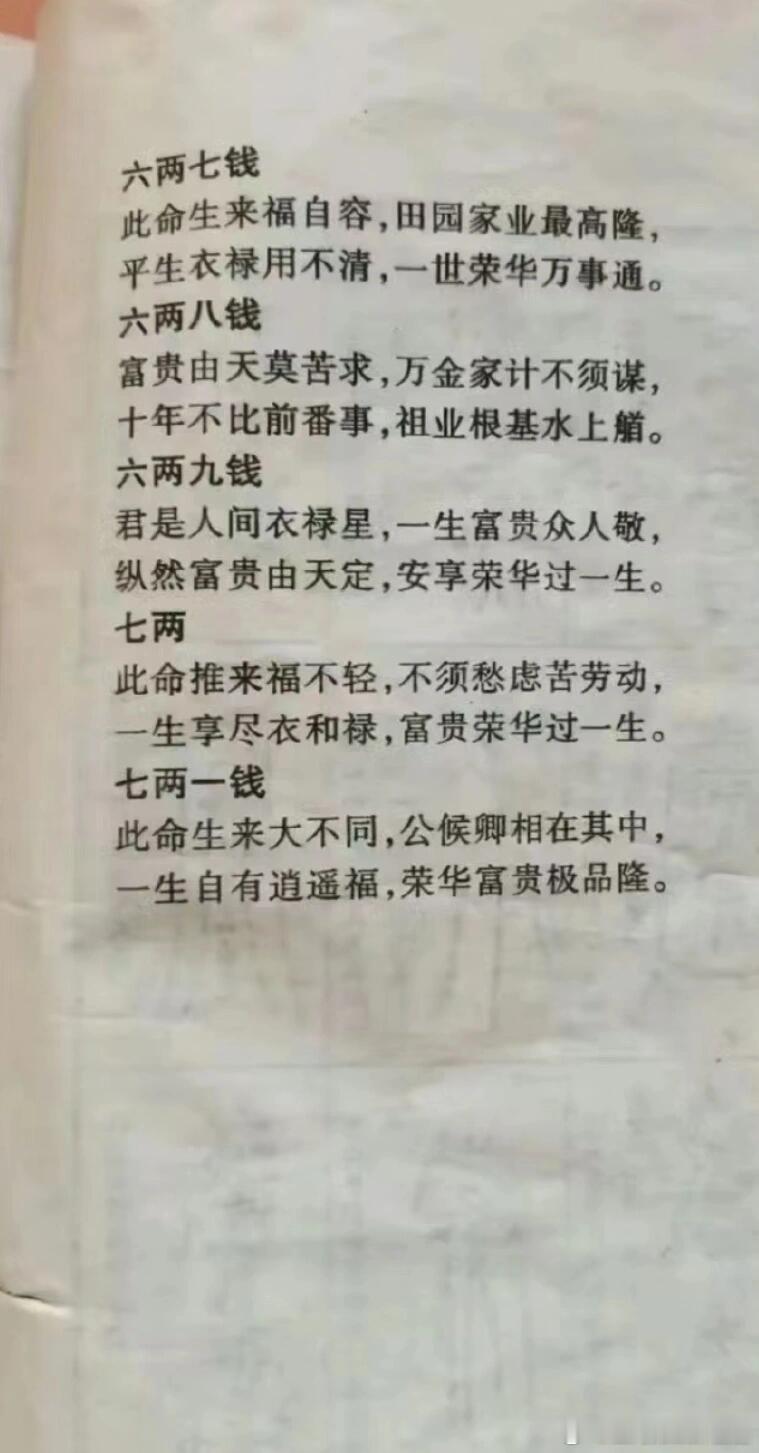 六两七钱
此命生来福自容，田园家业最高隆，
平生衣禄用不清，一世荣华万事通。
六两八钱
富贵由天莫苦求，万金家计不须谋，
十年不比前番事，祖业根基水上艏。
六两九钱
君是人间衣禄星，一生富贵众人敬，
纵然富贵由天定，安享荣华过一生。
七两
此命推来福不轻，不须愁虑苦劳动，
一生享尽衣和禄，富贵荣华过一生。
七两一钱
此命生来大不同，公候卿相在其中，
一生自有逍遥福，荣华富贵极品隆。